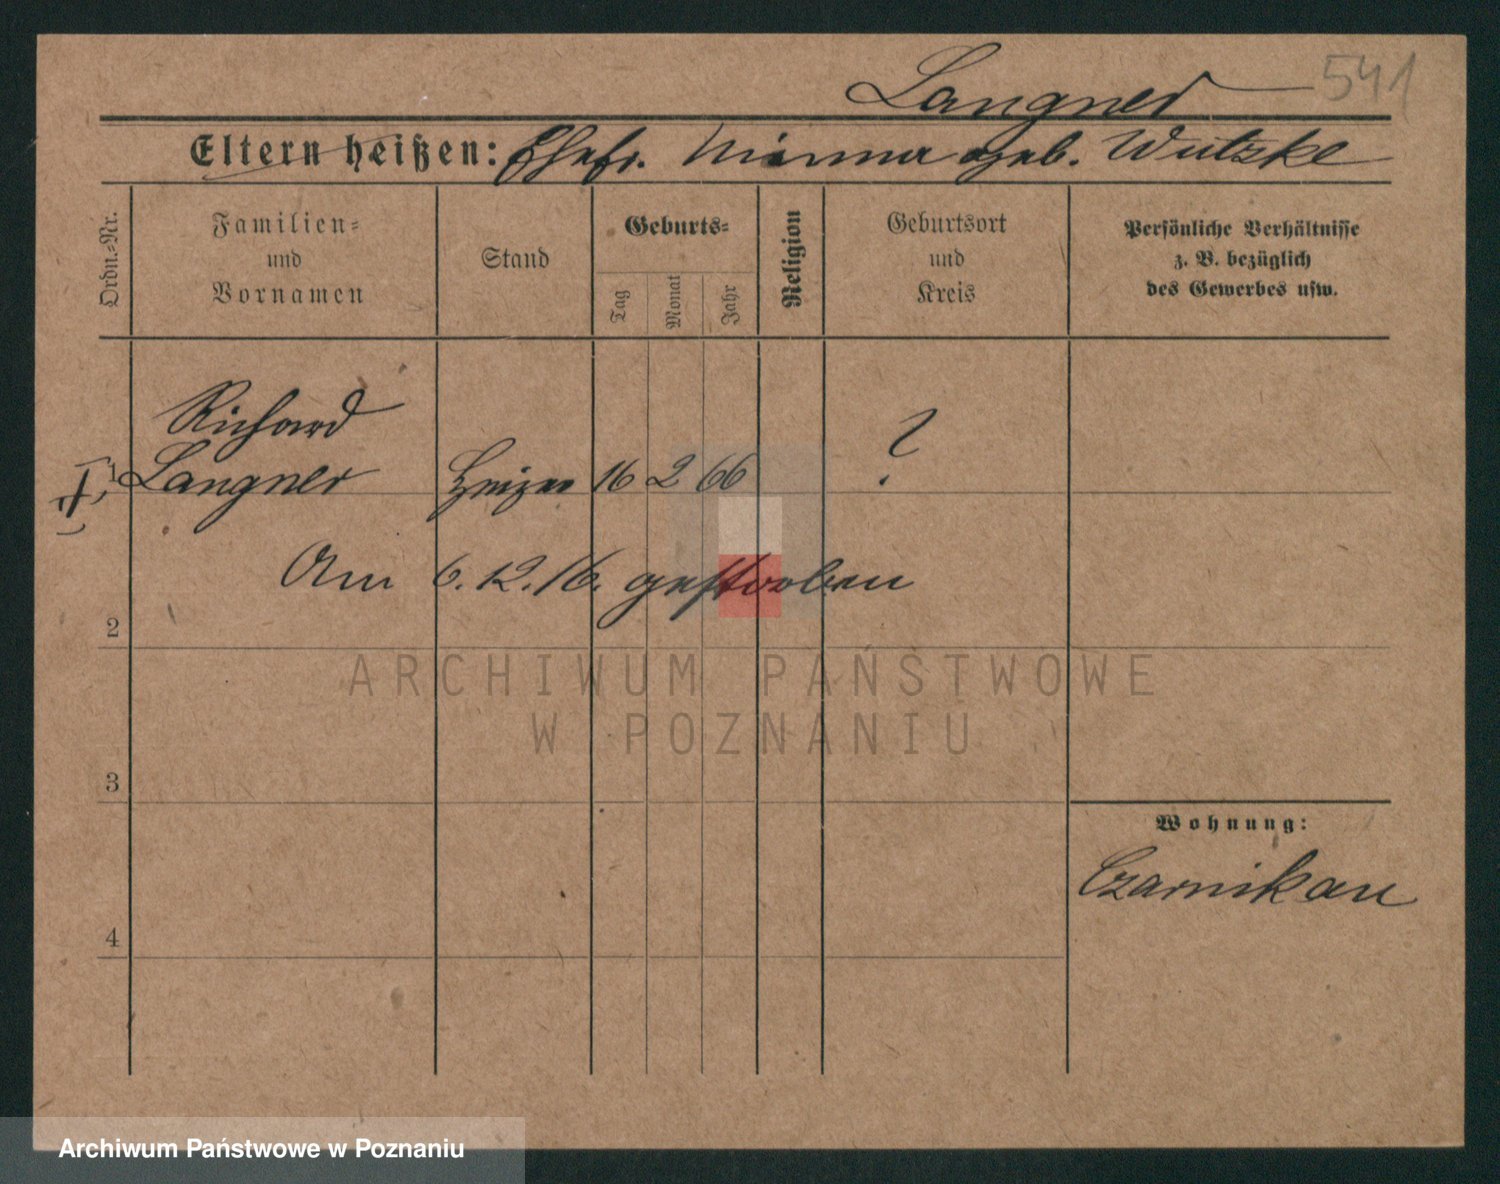 Langner 541
Eltern heißen: Ehefr. Minna geb. Wutzke
Ordn.-Nr.
Familien-
und
Vornamen
Stand
Geburts-
Tag
Monat
Jahr
Religion
Geburtsort
und
Kreis
Persönliche Verhältnisse
z. B. bezüglich
des Gewerbes usw.
Richard
1 Langner Heizer 16 2 66 ?
Am 6.12.16. gestorben
2
ARCHIWUM PAŃSTWOWE
W POZNANIU
3
Wohnung:
Czarnikau
4
Archiwum Państwowe w Poznaniu